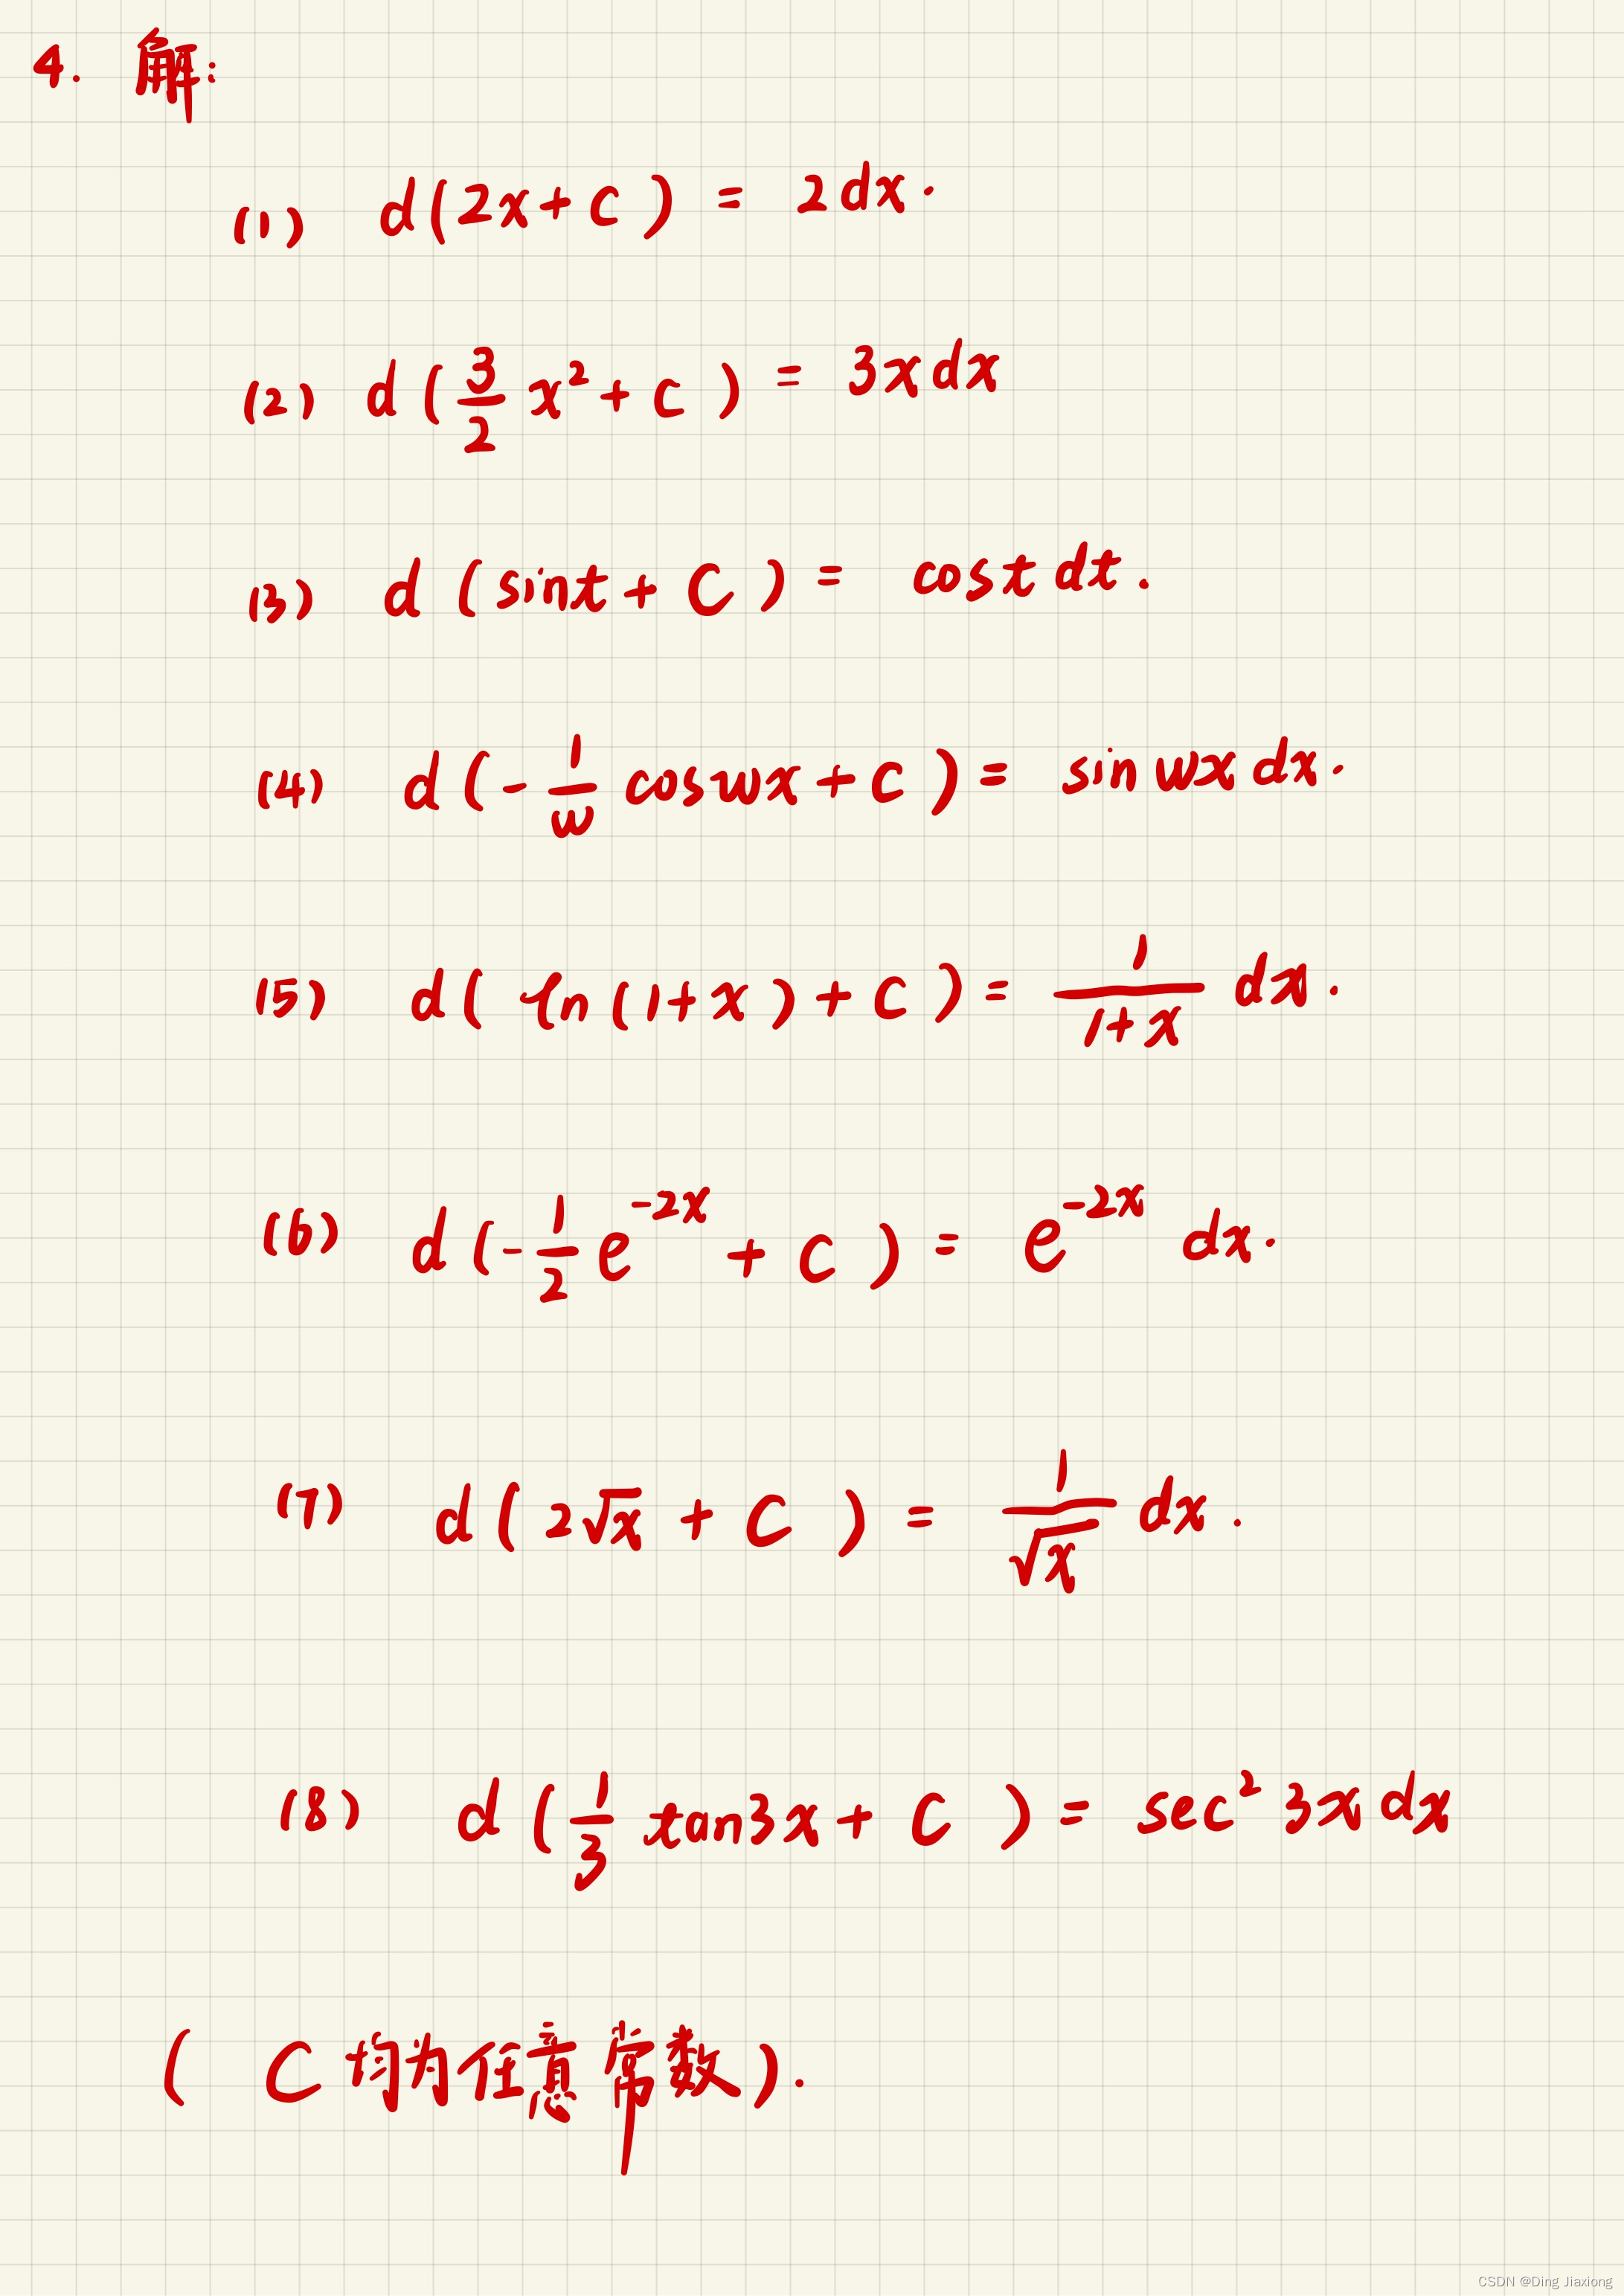 4. 解:
(1) d(2x+C) = 2dx.
(2) d(\frac{3}{2}x²+C) = 3xdx
(3) d(sint+C) = cost dt.
(4) d(-\frac{1}{w}coswx+C) = sin wx dx.
(5) d(ln(1+x)+C) = \frac{1}{1+x} dx.
(6) d(-\frac{1}{2}e^{-2x}+C) = e^{-2x} dx.
(7) d(2\sqrt{x}+C) = \frac{1}{\sqrt{x}} dx.
(8) d(\frac{1}{3}tan3x+C) = sec²3xdx
(C均为任意常数).
CSDN @Ding Jiaxiong